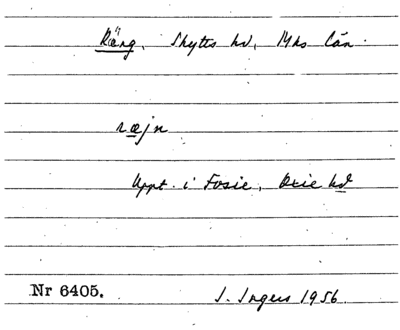 Räng, Skytts hd, Mhs län.
ræjn
Uppt. i Fosie, Oxie hd
Nr 6405.
I. Ingers 1956.